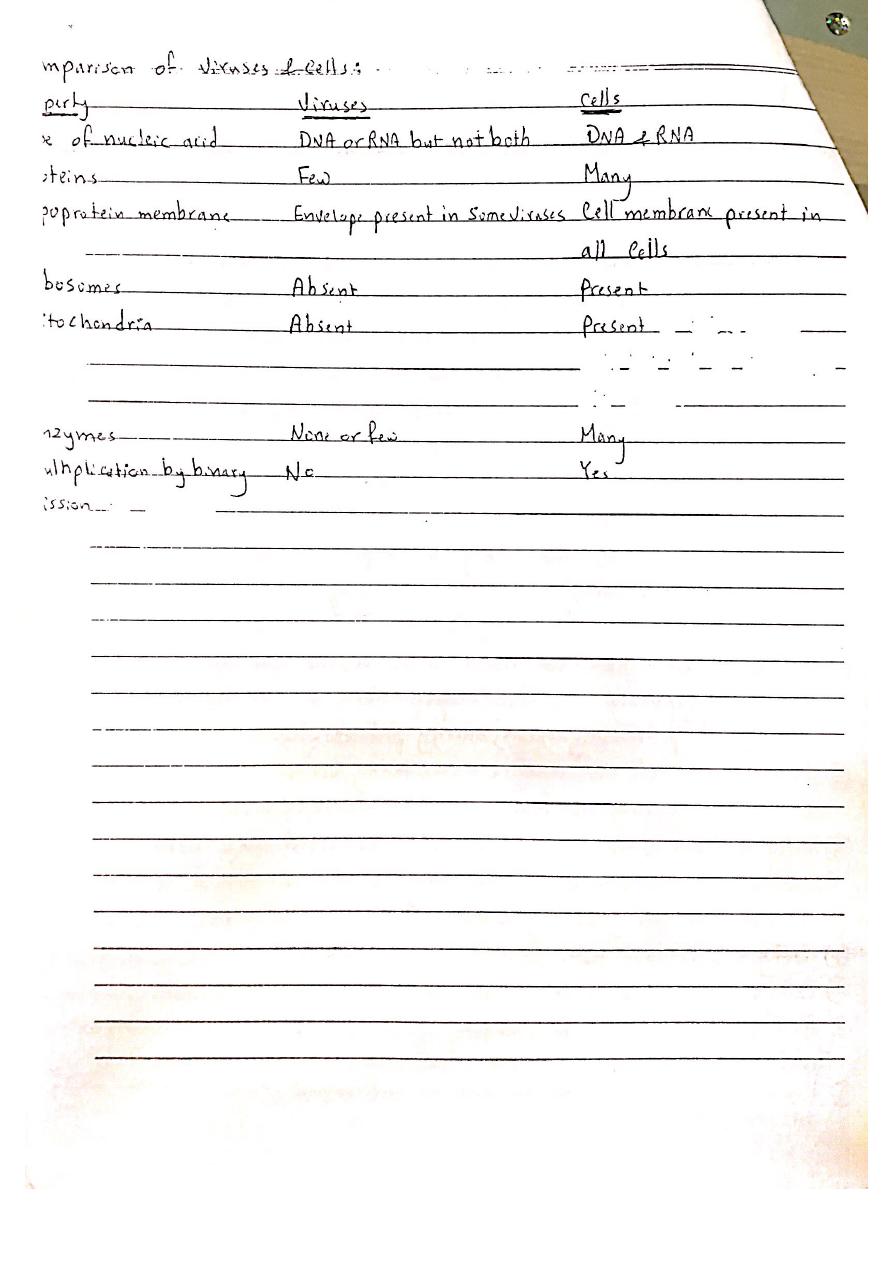 mparison of Viruses & Cells:
perty Viruses Cells
e of nucleic acid DNA or RNA but not both DNA & RNA
oteins Few Many
poprotein membrane Envelope present in Some viruses Cell membrane present in
all Cells
bosomes Absent Present
itochondria Absent Present
nzymes None or few Many
ultiplication by binary No Yes
ission